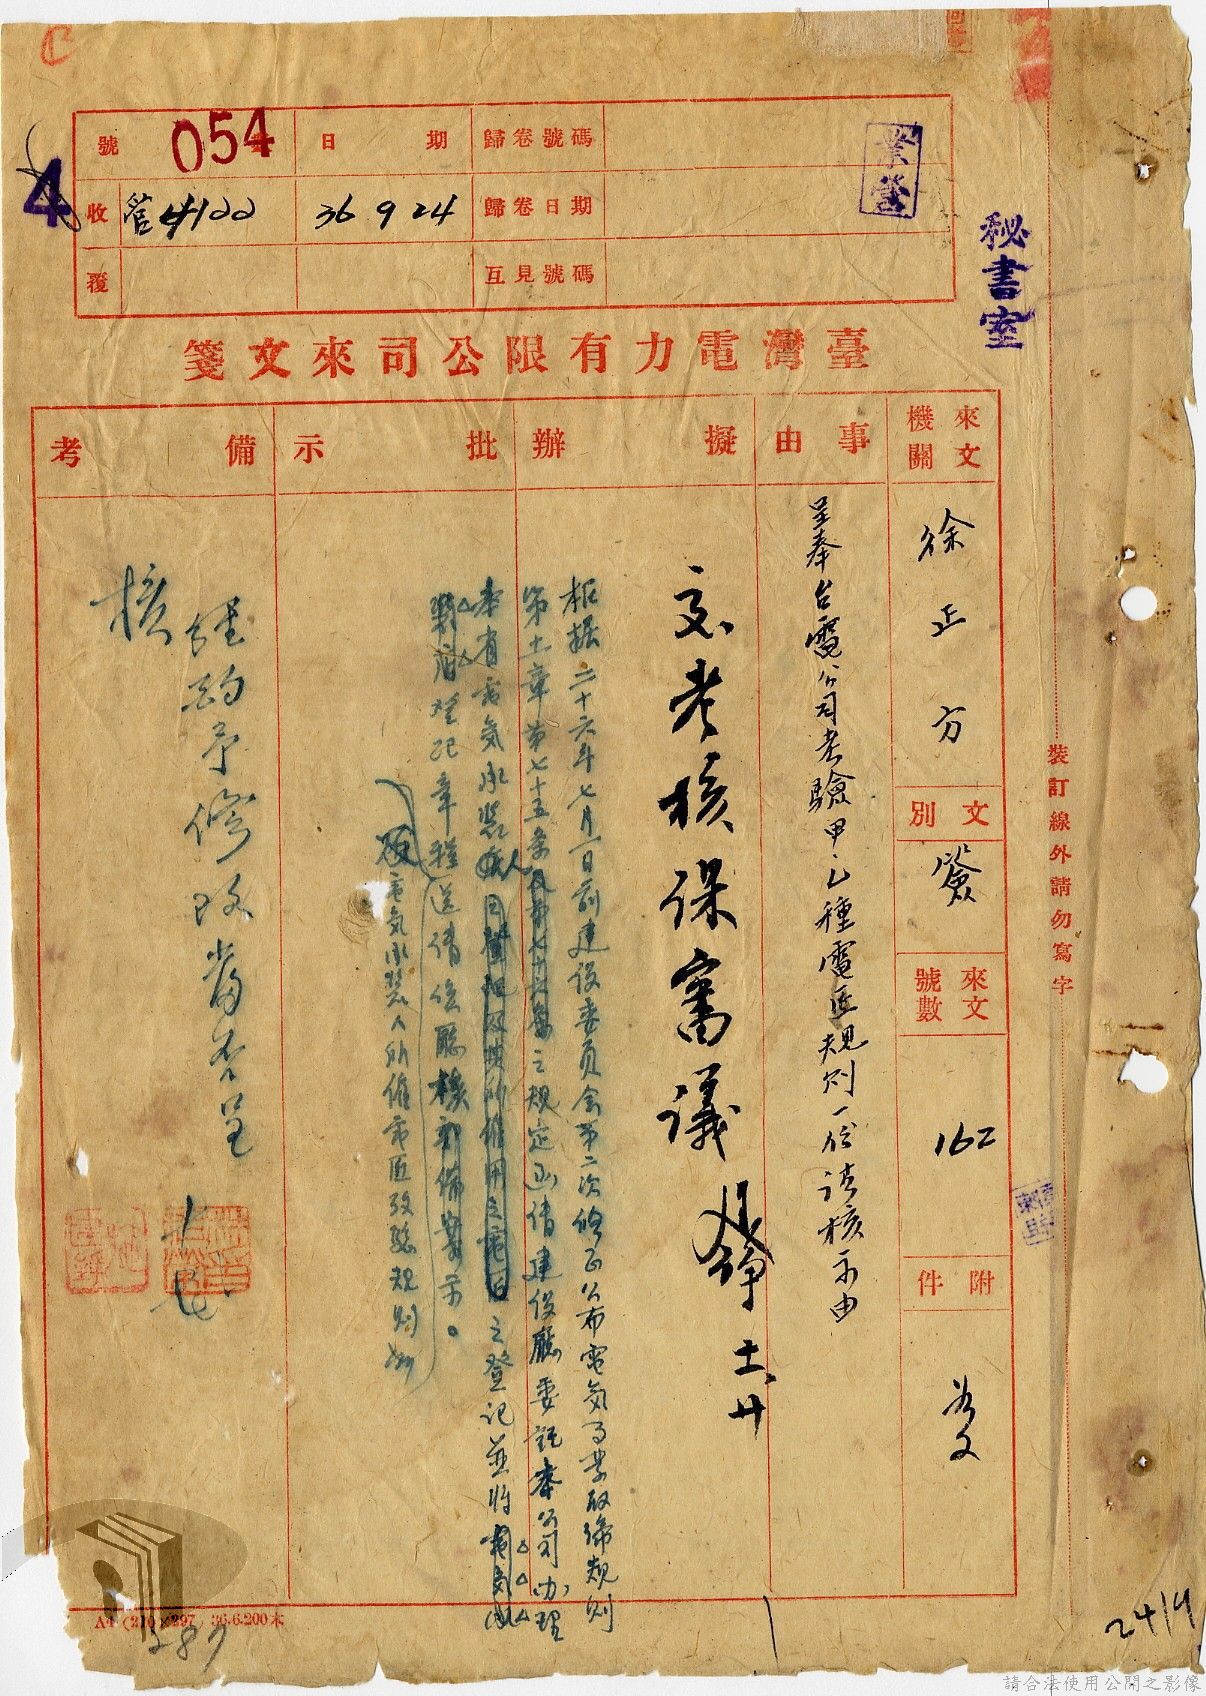 054
號
日期
歸卷號碼
收
管4122
36 9 24
歸卷日期
覆
互見號碼
業營
秘書室
4
臺灣電力有限公司來文箋
來文機關
徐正方
文別
簽
來文號數
162
附件
如文
事由
呈奉台電公司考驗甲乙種電匠規則一份請核示由
擬辦
交考核保審議
十一、廿
根據二十六年七月一日前建設委員會第二次修正公布電氣事業取締規則
第十一章第七十五條及第七十六條之規定函請建設廳委託本公司办理
本省電氣承裝人之登記並將
登記章程送請
廳核備案示。
電氣承裝人所僱電匠考驗規則
批示
備考
經酌予修改當否呈
核
裝訂線外請勿寫字
A4 (210×297) 36.6.200本
287
24/9
請合法使用公開之影像